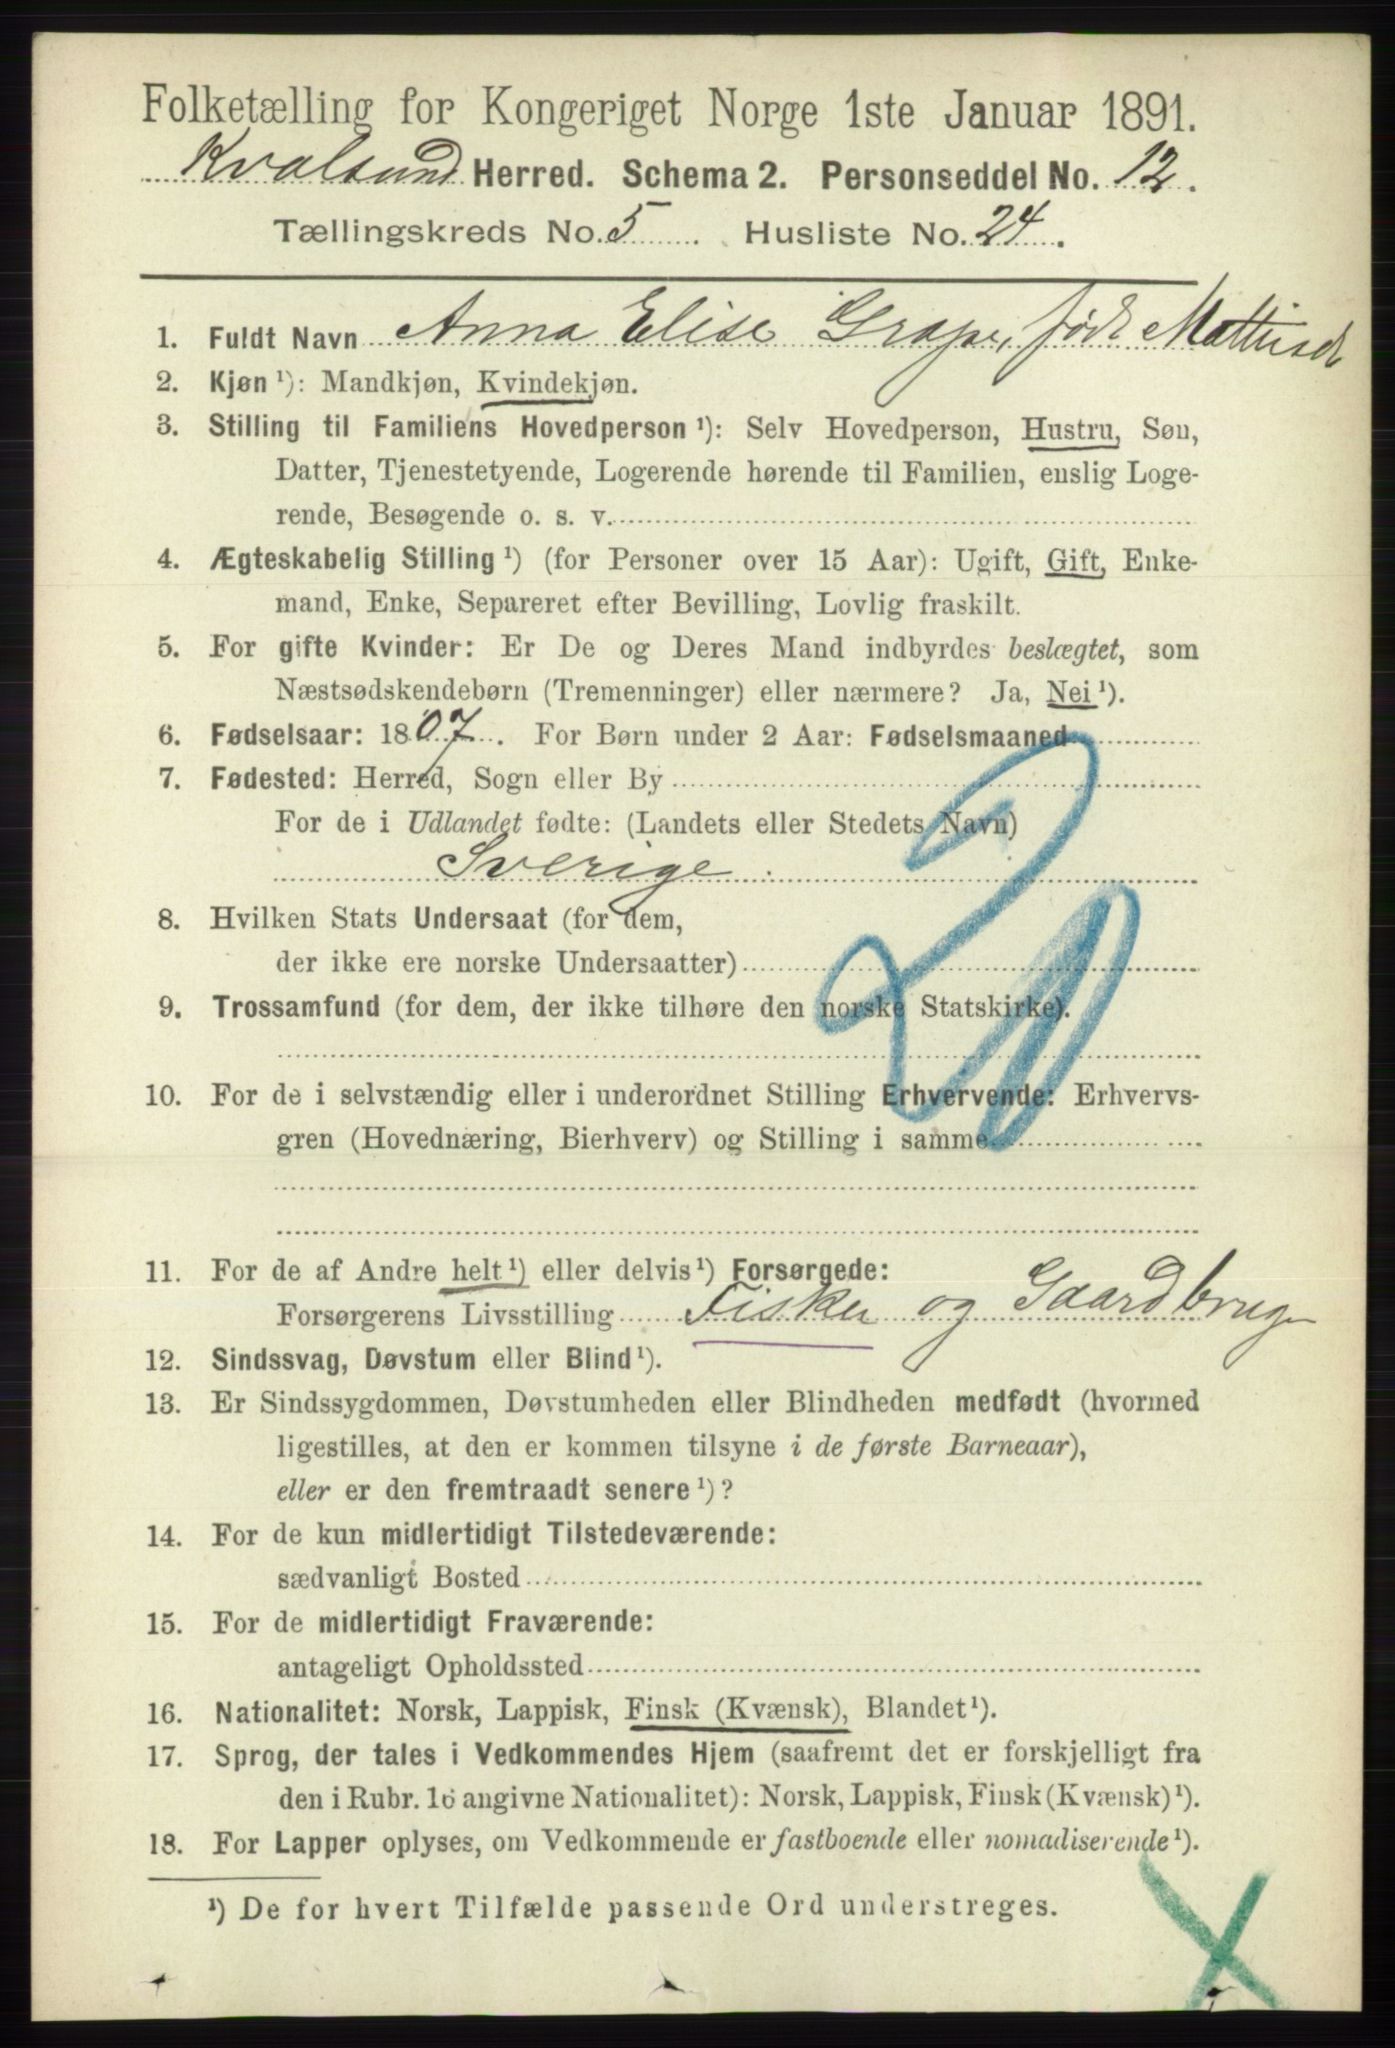 Folketælling for Kongeriget Norge 1ste Januar 1891.
Kvalsund Herred. Schema 2. Personseddel No. 12.
Tællingskreds No. 5. Husliste No. 24.
1. Fuldt Navn Anna Elise Grape, født Mattisdt
2. Kjøn ¹): Mandkjøn, Kvindekjøn.
3. Stilling til Familiens Hovedperson ¹): Selv Hovedperson, Hustru, Søn,
Datter, Tjenestetyende, Logerende hørende til Familien, enslig Loge-
rende, Besøgende o. s. v.
4. Ægteskabelig Stilling ¹) (for Personer over 15 Aar): Ugift, Gift, Enke-
mand, Enke, Separeret efter Bevilling, Lovlig fraskilt.
5. For gifte Kvinder: Er De og Deres Mand indbyrdes beslægtet, som
Næstsødskendebørn (Tremenninger) eller nærmere? Ja, Nei ¹).
6. Fødselsaar: 1807. For Børn under 2 Aar: Fødselsmaaned
7. Fødested: Herred, Sogn eller By
For de i Udlandet fødte: (Landets eller Stedets Navn)
Sverige.
8. Hvilken Stats Undersaat (for dem,
der ikke ere norske Undersaatter)
9. Trossamfund (for dem, der ikke tilhøre den norske Statskirke).
10. For de i selvstændig eller i underordnet Stilling Erhvervende: Erhvervs-
gren (Hovednæring, Bierhverv) og Stilling i samme
11. For de af Andre helt ¹) eller delvis ¹) Forsørgede:
Forsørgerens Livsstilling Fisker og Gaardbrug
12. Sindssvag, Døvstum eller Blind ¹).
13. Er Sindssygdommen, Døvstumheden eller Blindheden medfødt (hvormed
ligestilles, at den er kommen tilsyne i de første Barneaar),
eller er den fremtraadt senere ¹)?
14. For de kun midlertidigt Tilstedeværende:
sædvanligt Bosted
15. For de midlertidigt Fraværende:
antageligt Opholdssted
16. Nationalitet: Norsk, Lappisk, Finsk (Kvænsk), Blandet ¹).
17. Sprog, der tales i Vedkommendes Hjem (saafremt det er forskjelligt fra
den i Rubr. 16 angivne Nationalitet): Norsk, Lappisk, Finsk (Kvænsk) ¹).
18. For Lapper oplyses, om Vedkommende er fastboende eller nomadiserende ¹).
¹) De for hvert Tilfælde passende Ord understreges.